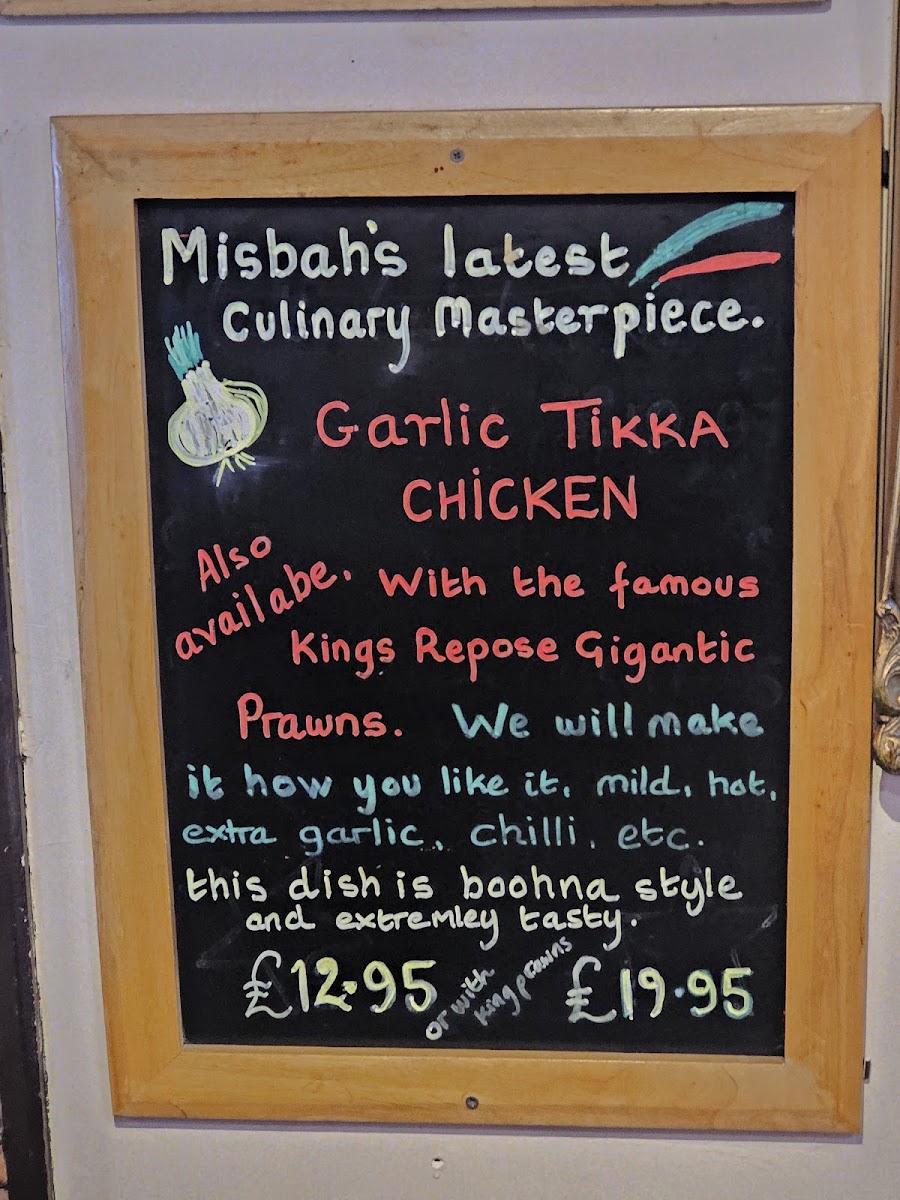 Misbah's latest
Culinary Masterpiece.
Garlic TIKKA
CHICKEN
Also
availabe.
With the famous
Kings Repose Gigantic
Prawns. We will make
it how you like it, mild, hot,
extra garlic, chilli, etc.
this dish is boohna style
and extremley tasty.
£12.95 or with
king prawns £19.95